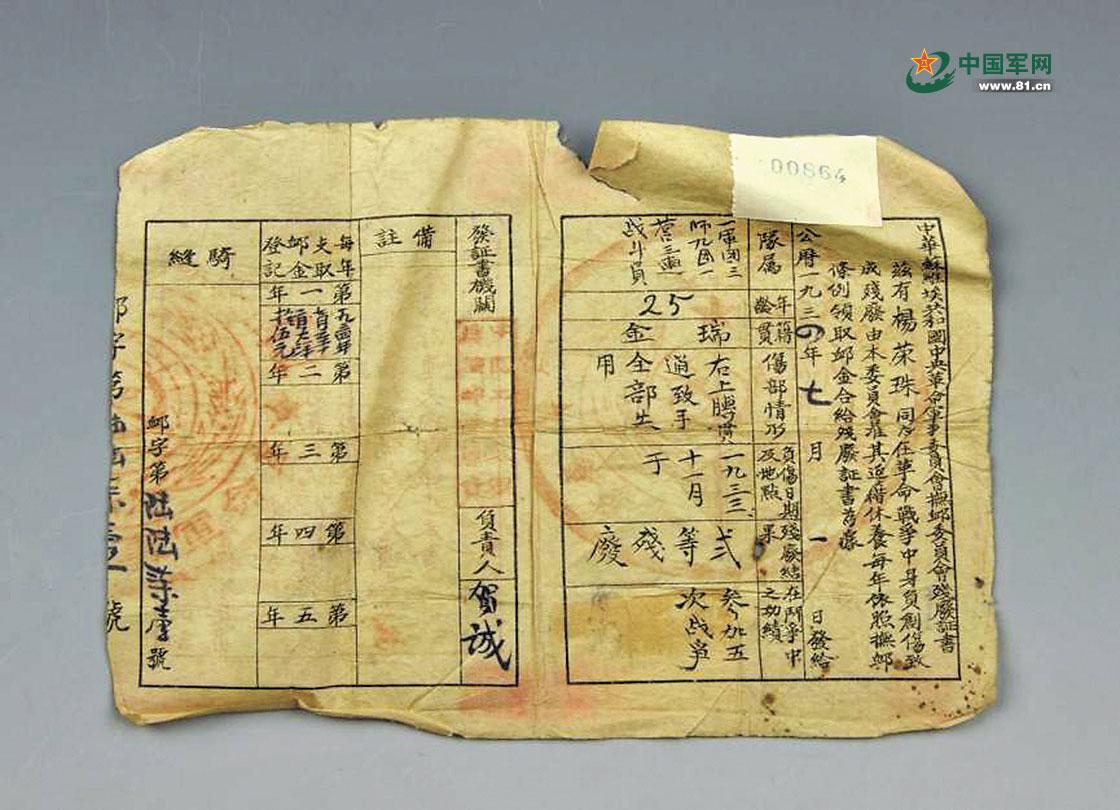 中国军网
www.81.cn
00864
中華蘇維埃共和國中央革命軍事委員會撫卹委員會殘廢証書
兹有楊荣珠同志在革命戰爭中身負創傷致
成殘廢由本委員會准其返籍休養每年依照撫卹
條例領取卹金合給残廢証書為據
公曆一九三四年七月一日發給
隊屬
一軍團三
師九团一
营三連
战斗員
年齡
25
籍貫
瑞金
傷部情形
右上膊貫
通致手
全部失
用
負傷日期
及地點
一九三三、
十一月
于
殘廢結果
弍等殘廢
在鬥爭中
之功績
参加五
次战爭
發証書機關
負責人
賀誠
備註
每年
支取
卹金
登記
第一年
第二年
第三年
第四年
第五年
騎縫
卹字第陆陆柒壹號